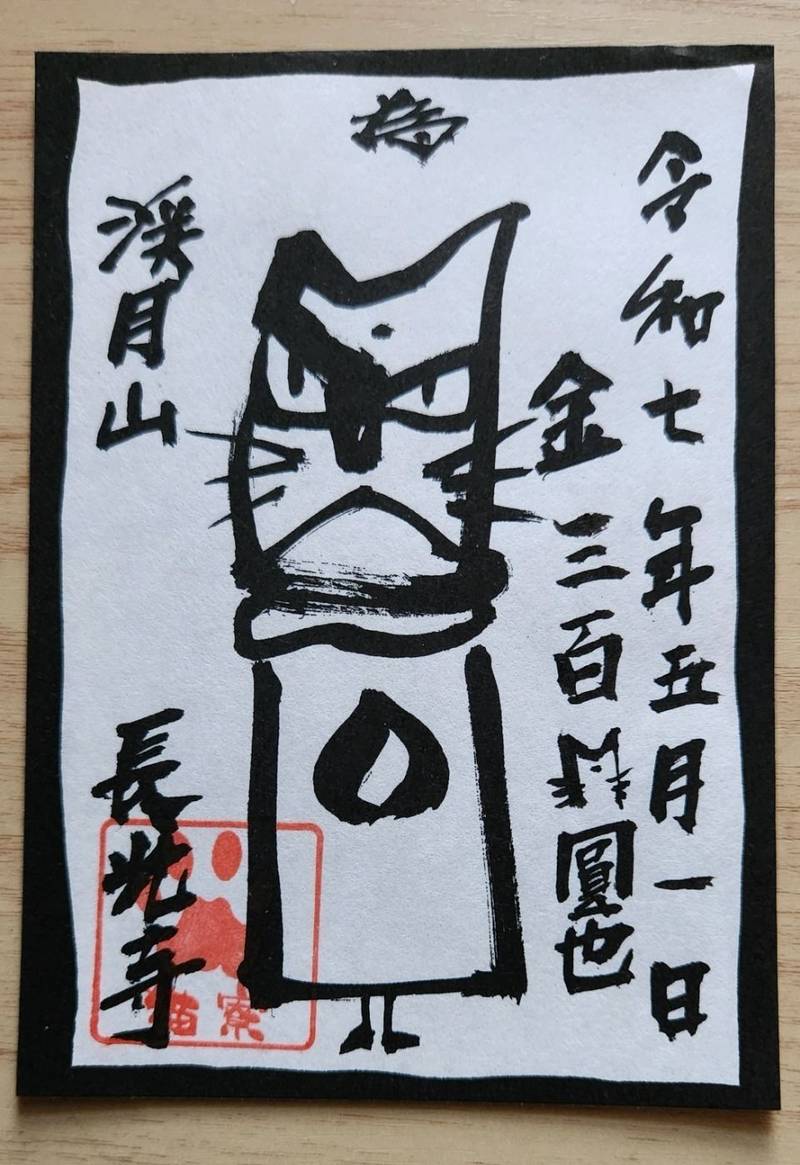 令和七年五月一日
金三百圓也
渓月山
長光寺
猫寮